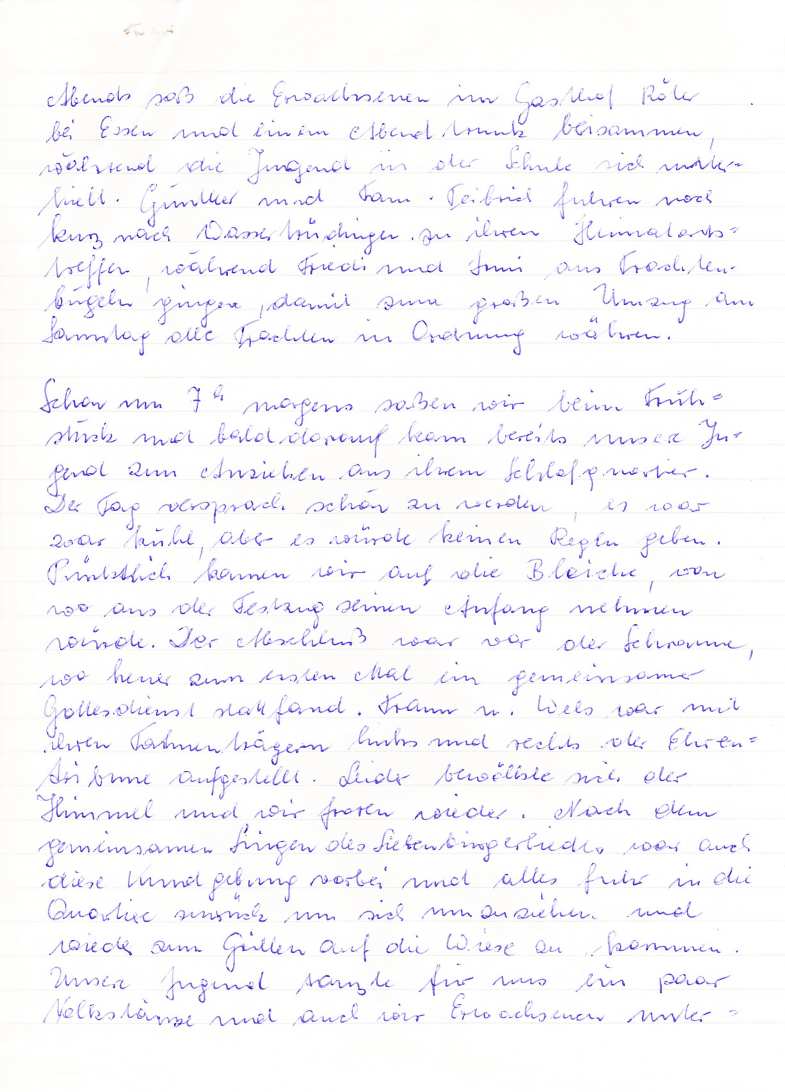 Abends saß die Erwachsenen im Gasthof Röter
bei Essen und einem Abendtrunk beisammen,
während die Jugend in der Schule sich unter-
hielt. Günther und Fam. Feibrich fuhren noch
kurz nach Wassertrüdingen zu ihren Heimatorts=
treffen, während Friedi und ans Trachten-
bügeln gingen, damit zum großen Umzug am
Samstag alle Trachten in Ordnung währen.
Schon um 7h morgens saßen wir beim Früh=
stück und bald darauf kam bereits unsere Ju-
gend zum Anziehen aus ihrem Schlafquartier.
Der Tag versprach schön zu werden, es war
zwar kühl, aber es würde keinen Regen geben.
Pünktlich kamen wir auf die Bleiche, von
wo aus der Festzug seinen Anfang nehmen
würde. Der Abschluß war vor der Schranne,
wo heuer zum ersten Mal ein gemeinsamer
Gottesdienst stattfand. Traun u. Wels war mit
ihren Fahnenträgern links und rechts der Ehren=
tribüne aufgestellt. Leider bewölkte sich der
Himmel und wir froren wieder. Nach dem
gemeinsamen Singen des Siebenbürgerliedes war auch
diese Kundgebung vorbei und alles fuhr in die
Quartiere zurück um sich umzuziehen und
wieder zum Grillen auf die Wiese zu kommen.
Unsere Jugend tanzte für uns ein paar
Volkstänze und auch wir Erwachsenen unter=